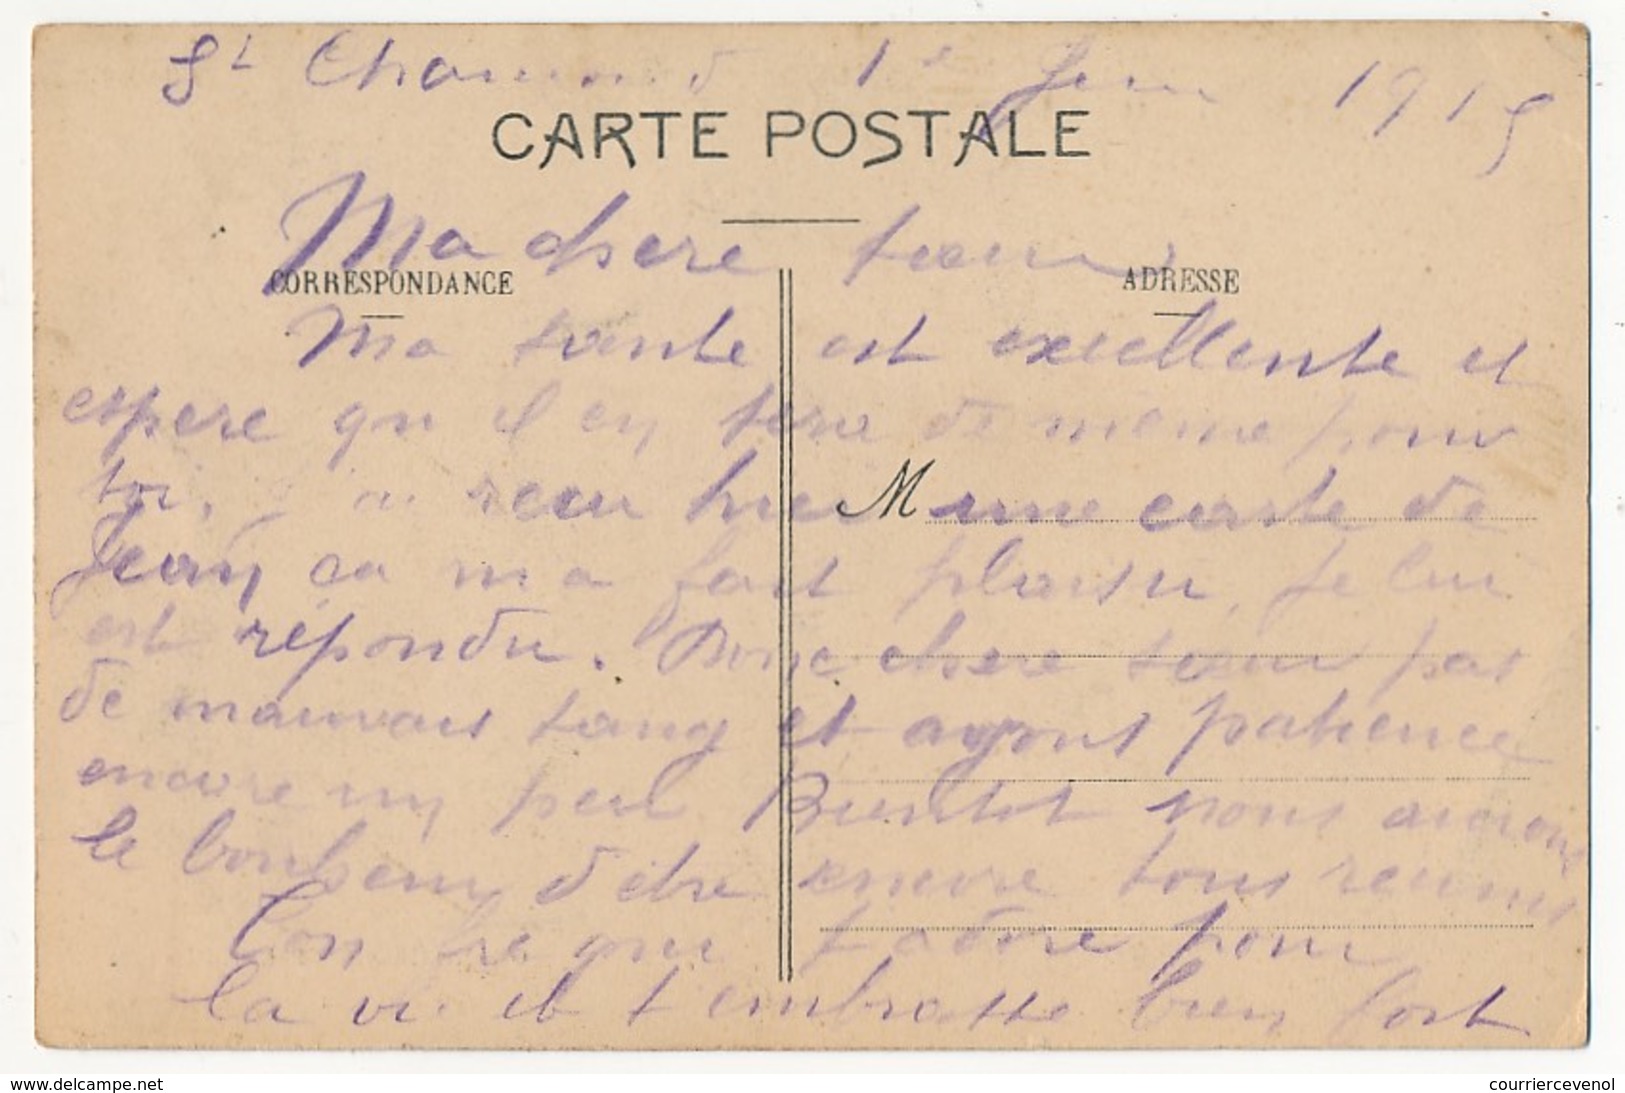 St Chamond 1e Juin 1915
CARTE POSTALE
Ma chere sœur
CORRESPONDANCE
ADRESSE
Ma sante est excellente et
espere qu il en sera de même pour
toi, j ai recu hier une carte de
M
Jean ca m a fait plaisir, je lui
est répondu. Donc chere sœur pas
de mauvais sang et ayons patience
encore un peu Bientot nous aurons
le bonheur d etre encore tous reunis
Ton fre qui t adore pour
la vie et t embrasse bien fort
www.delcampe.net
courriercevenol